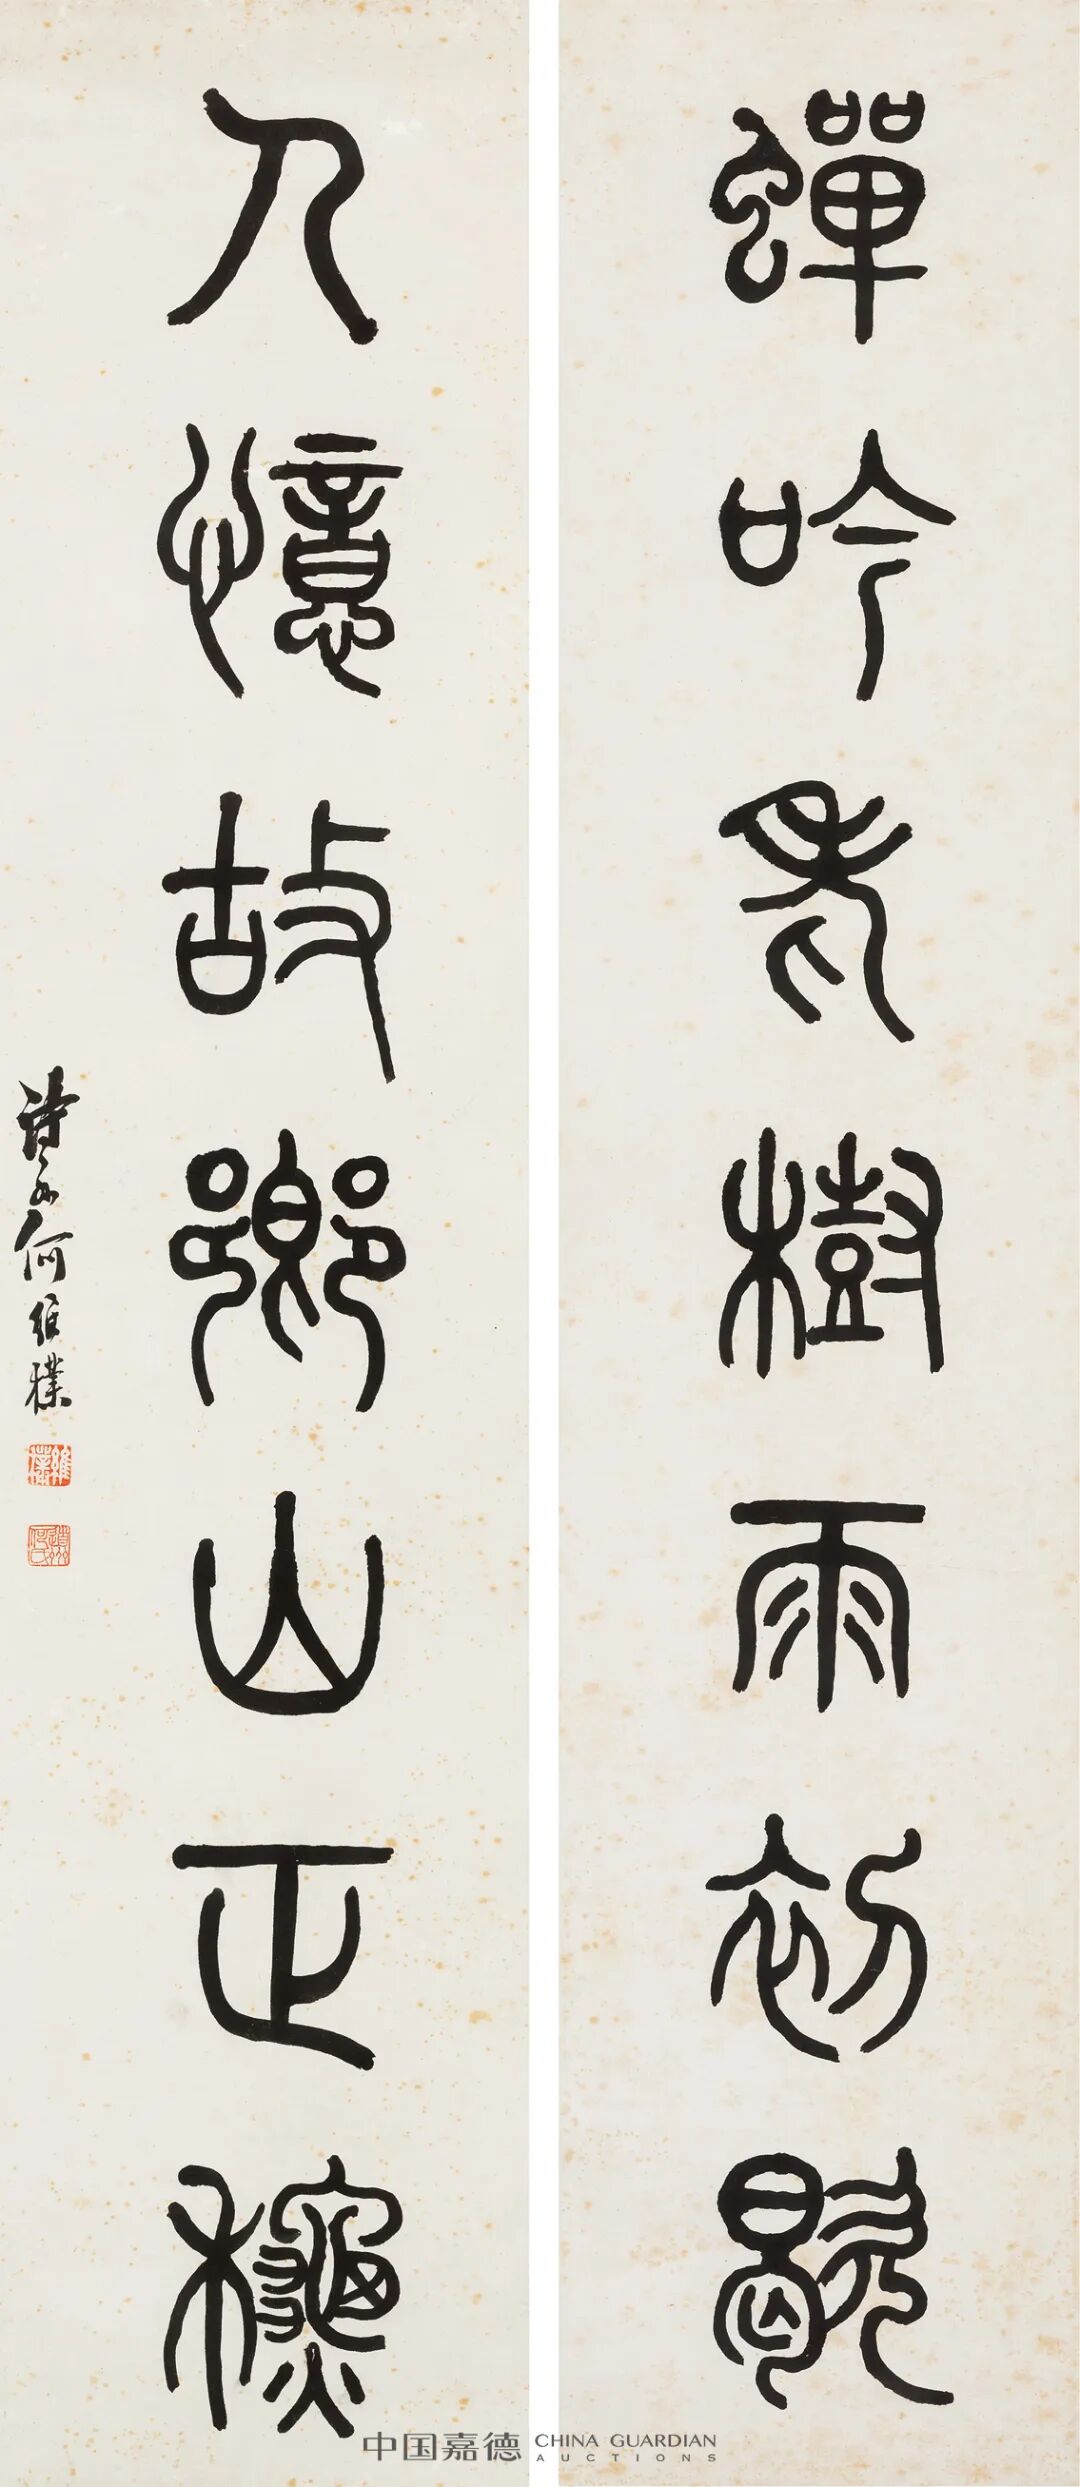 蟬吟老樹雨初歇
人憶故鄉山正穐
詩孫何維樸
維樸
道州何氏
中国嘉德
CHINA GUARDIAN
AUCTIONS